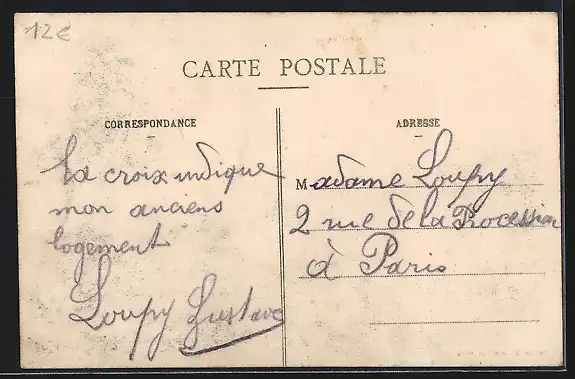 12€
CARTE POSTALE
CORRESPONDANCE
La croix indique
mon anciens
logement
Loupy Gustave
ADRESSE
Madame Loupy
2 rue de la Procession
à Paris